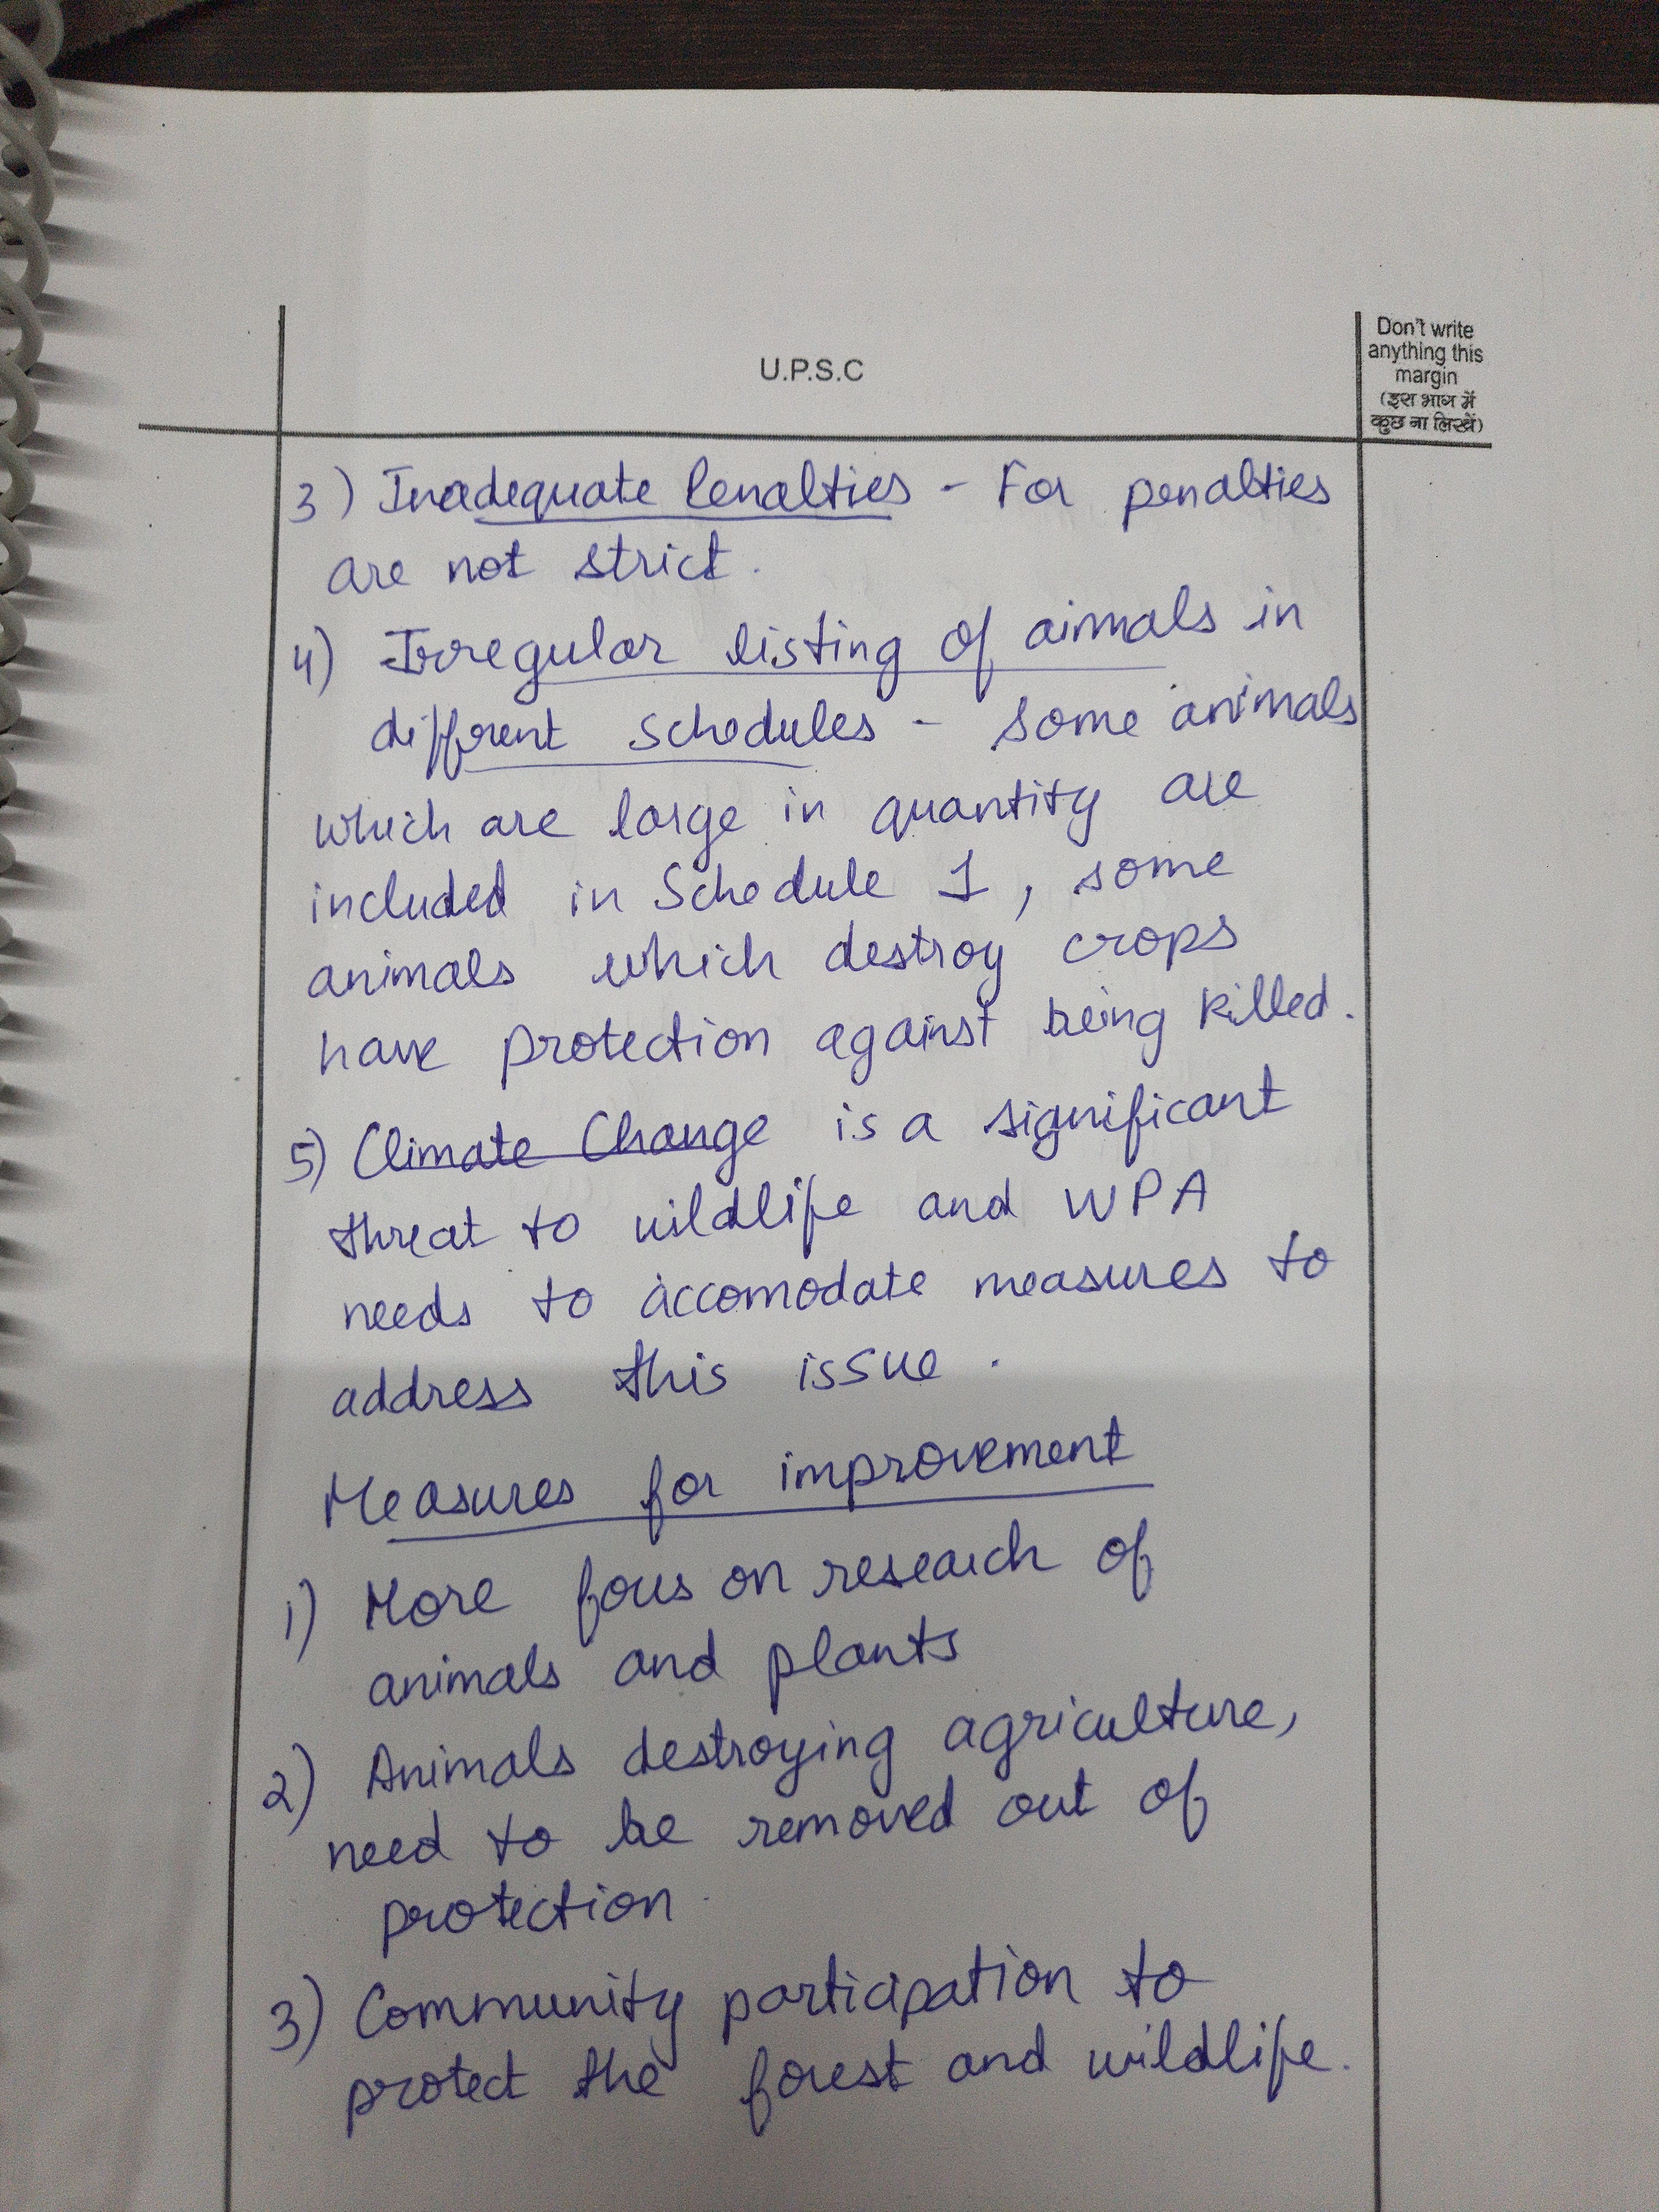 U.P.S.C
Don't write
anything this
margin
(इस भाग में
कुछ ना लिखें)
3) Inadequate Penalties - For penalties
are not strict.
4) Irregular listing of aimals in
different schedules - some animals
which are large in quantity are
included in Schedule 1, some
animals which destroy crops
have protection against being killed.
5) Climate Change is a significant
threat to wildlife and WPA
needs to accomodate measures to
address this issue.
Measures for improvement
1) More focus on research of
animals and plants
2) Animals destroying agriculture,
need to be removed out of
protection.
3) Community participation to
protect the forest and wildlife.